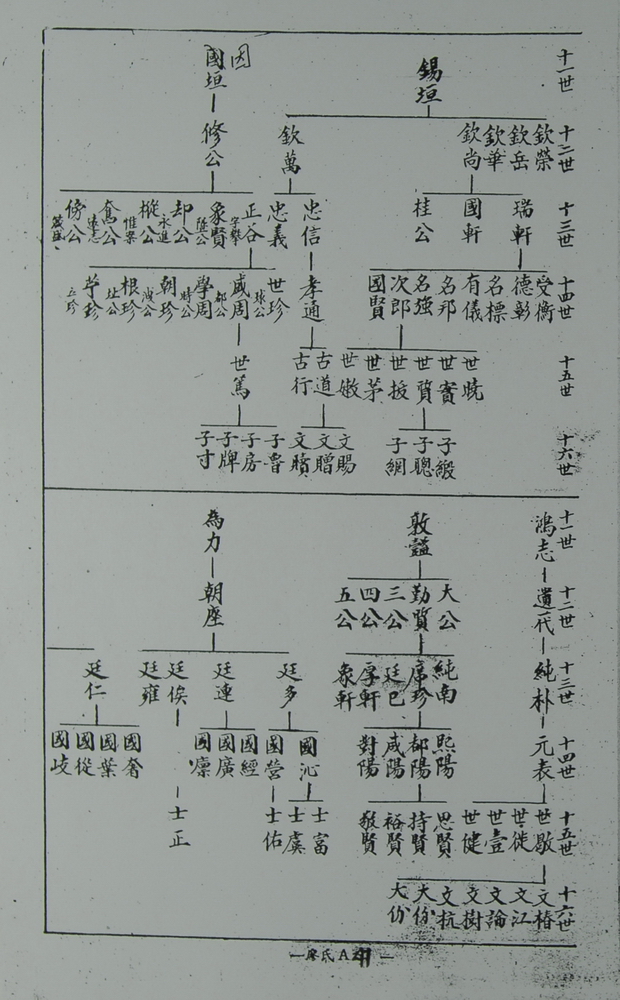 十一世
錫垣
因
國垣
十二世
欽榮
欽岳
欽華
欽尚
欽萬
修公
十三世
瑞軒
國軒
桂公
忠信
忠義
正谷
象賢
陸公
却公
永進
樅公
惟案
奮公
遠志
傍公
十四世
受衡
德彰
名標
有儀
名邦
名強
次郎
國賢
孝通
世珍
球公
咸周
都公
學周
時公
朝珍
根珍
芋珍
立珍
十五世
世曉
世賓
世賢
世援
世茅
世嫩
古道
古行
世篤
十六世
子緞
子聰
子網
文賜
文贈
文贖
子魯
子房
子牌
子寸
十一世
鴻志
敦謚
為力
十二世
遺代
大公
勤賢
三公
四公
五公
朝座
十三世
純朴
純南
席珍
廷巳
厚軒
象軒
廷多
廷連
廷俟
廷雍
廷仁
十四世
元表
熙陽
都陽
咸陽
對陽
國沁
國營
國經
國廣
國凜
國奢
國葉
國從
國歧
十五世
世歇
世徙
世壹
世健
思賢
持賢
裕賢
敬賢
士富
士虞
士佑
士正
十六世
文椿
文江
文論
文樹
文杭
大份
大份
—廖氏A